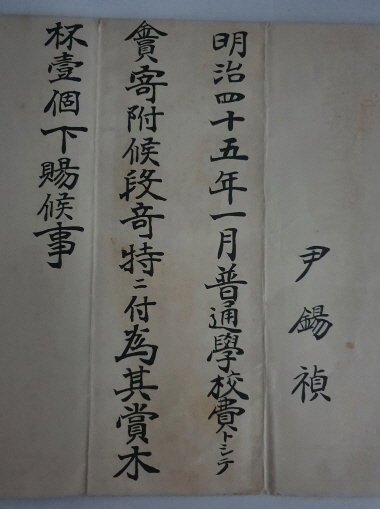 尹錫禎
明治四十五年一月普通學校費トシテ
金員寄附候段奇特ニ付為其賞木
杯壹個下賜候事